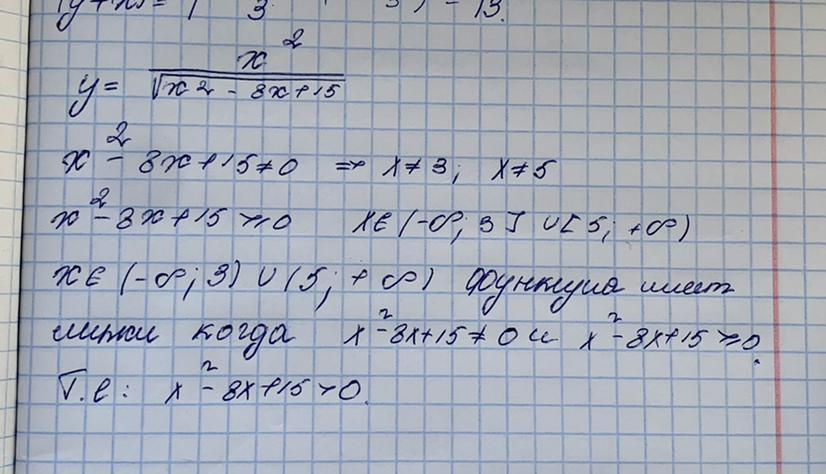 y = x² / √(x² - 8x + 15)
x² - 8x + 15 ≠ 0 ⇒ x ≠ 3; x ≠ 5
x² - 8x + 15 ≥ 0 x ∈ (-∞; 3] ∪ [5; +∞)
x ∈ (-∞; 3) ∪ (5; +∞) функция имеет
когда x² - 8x + 15 ≠ 0 и x² - 8x + 15 ≥ 0.
Т.е: x² - 8x + 15 > 0.